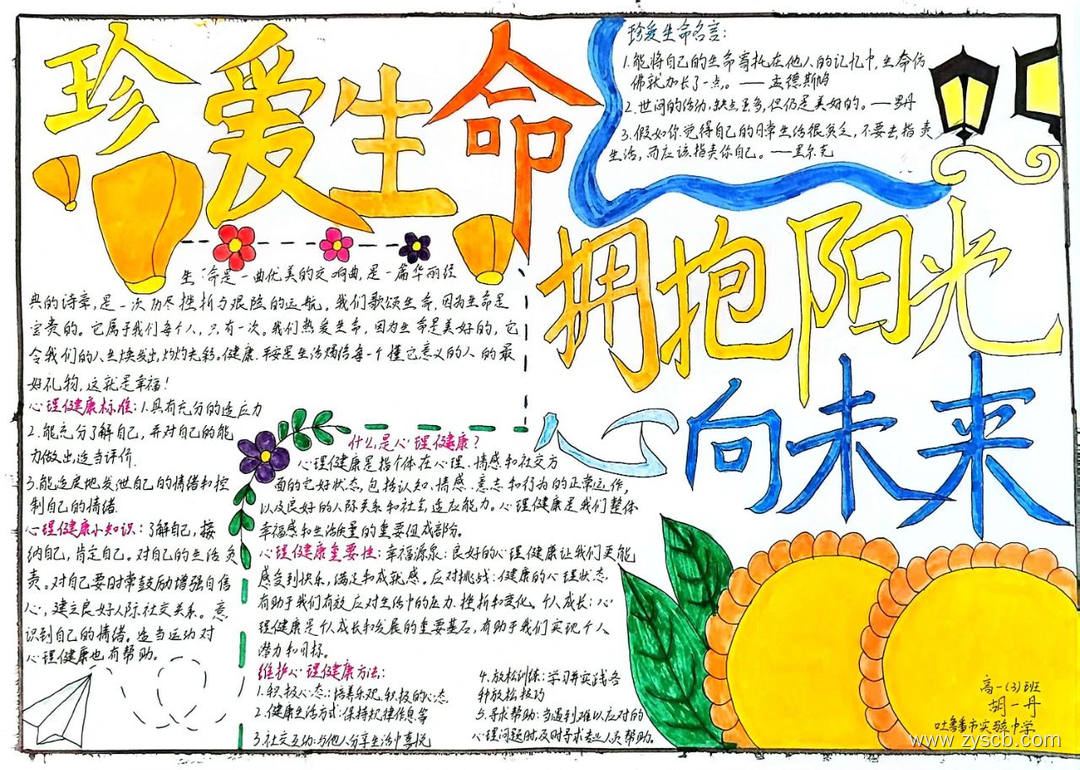 珍爱生命
珍爱生命名言：
1.能将自己的生命寄托在他人的记忆中，生命仿
佛就加长了一点。——孟德斯鸠
2.世间的活动，缺点虽多，但仍是美好的。——罗丹
3.假如你觉得自己的日常生活很贫乏，不要去指责
生活，而应该指责你自己。——里尔克
拥抱阳光
心向未来
生命是一曲优美的交响曲，是一篇华丽经
典的诗章，是一次历尽挫折与艰险的远航。我们歌颂生命，因为生命是
宝贵的。它属于我们每个人，只有一次。我们热爱生命，因为生命是美好的，它
令我们的人生焕发出灼灼光彩。健康、平安是生活赐给每一个懂它意义的人的最
好礼物，这就是幸福！
心理健康标准：1.具有充分的适应力
2.能充分了解自己，并对自己的能
力做出适当评价.
3.能适度地发泄自己的情绪和控
制自己的情绪.
心理健康小知识：了解自己，接
纳自己，肯定自己。对自己的生活负
责。对自己要时常鼓励增强自信
心，建立良好人际社交关系。意
识到自己的情绪。适当运动对
心理健康也有帮助。
什么是心理健康？
心理健康是指个体在心理、情感和社交方
面的良好状态，包括认知、情感、意志和行为的正常运作，
以及良好的人际关系和社会适应能力。心理健康是我们整体
幸福感和生活质量的重要组成部分。
心理健康重要性：幸福源泉：良好的心理健康让我们更能
感受到快乐，满足和成就感。应对挑战：健康的心理状态，
有助于我们有效应对生活中的压力、挫折和变化。个人成长：心
理健康是个人成长和发展的重要基石，有助于我们实现个人
潜力和目标。
维护心理健康方法：
1.积极心态：培养乐观、积极的心态
2.健康生活方式：保持规律作息等
3.社交互动：与他人分享生活中喜悦
4.放松训练：学习并实践各
种放松技巧
5.寻求帮助：当遇到难以应对的
心理问题时及时寻求专业人员帮助。
高一(3)班
胡一丹
吐鲁番市实验中学
www.zyscb.com